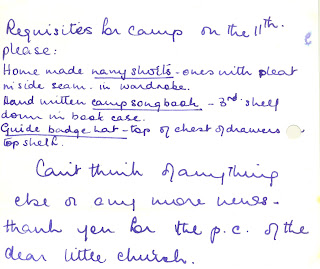 Requisites for camp on the 11th.
please:
Home made navy shorts - ones with pleat
inside seam. in wardrobe.
Hand written camp songbook - 3rd. shelf
down in book case.
Guide badge hat - top of chest of drawers
top shelf.
Can't think of anything
else or any more news -
thank you for the p.c. of the
dear little church.